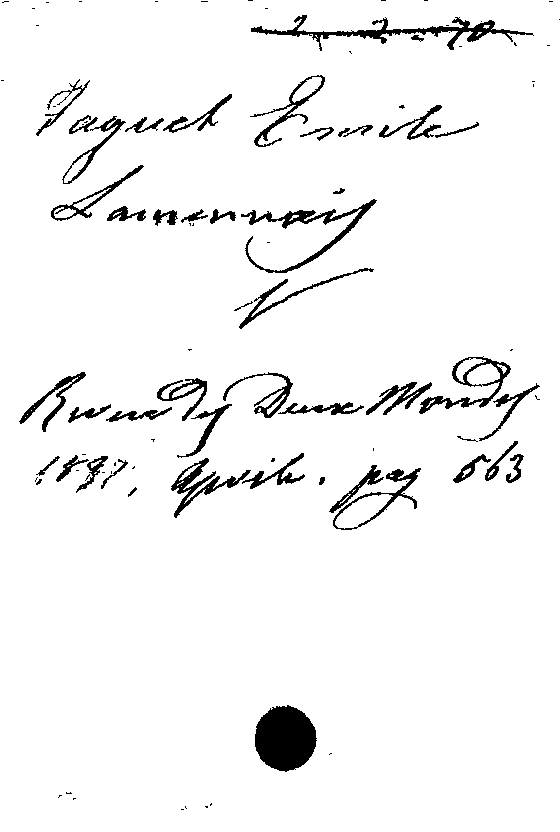 2. 2. - 70
Faguet Emile
Lamennais
Revue des Deux Mondes
1897, Aprile. pag 563